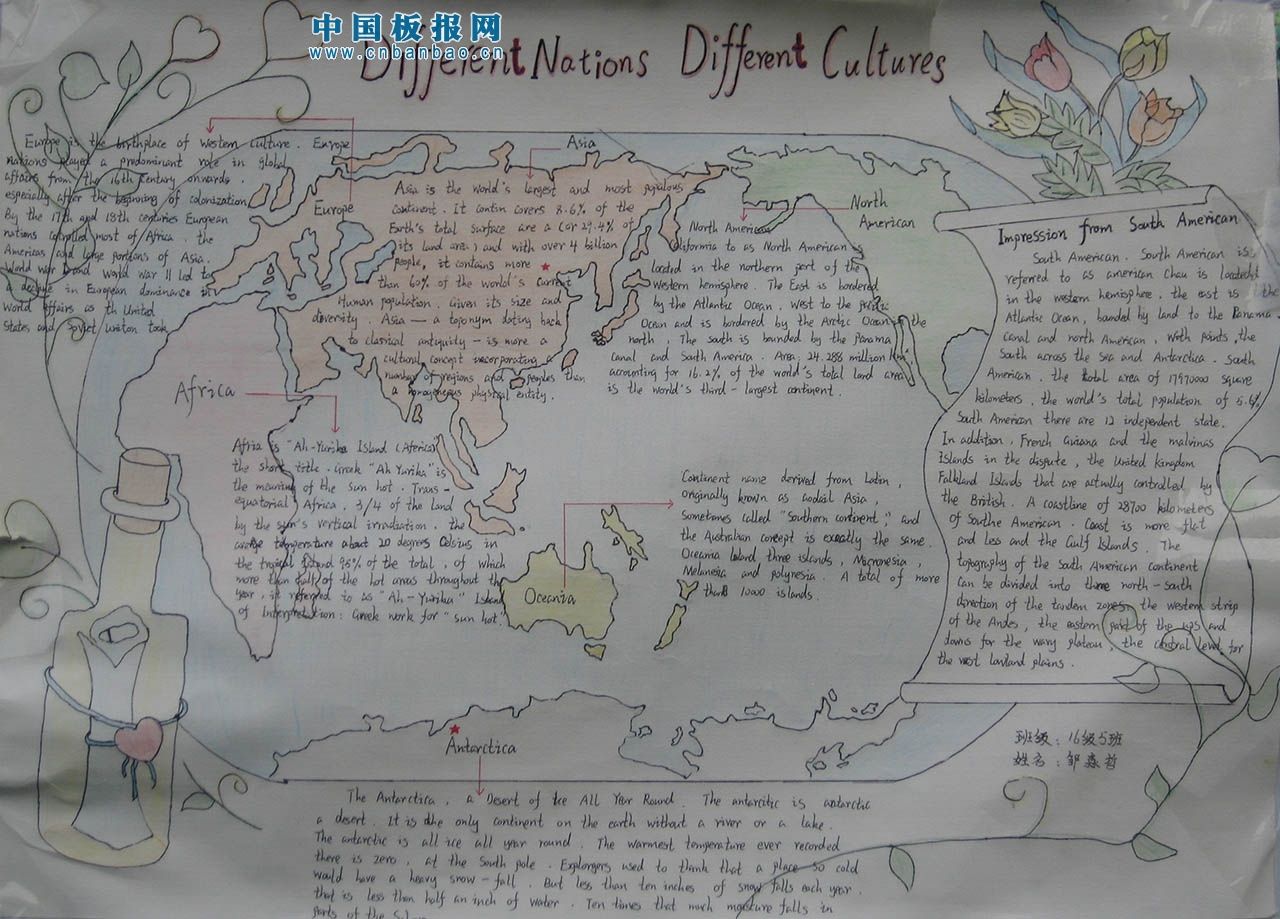 中国板报网
www.cnbanbao.cn
Different Nations Different Cultures
Europe is the birthplace of western culture. Europe
nations played a predominant role in global
affairs from the 16th century onwards.
especially after the beginning of colonization
By the 17th and 18th centuries European
nations controlled most of Africa. the
Americas and large portions of Asia.
World war I and World War II led to
a decline in European dominance in
world affairs as th United
States and Soviet Uniton took
Europe
Asia
Asia is the world's largest and most populous
continent. It contin covers 8.6% of the
Earth's total surface are a (or 29.4% of
its land area) and with over 4 billion
people, it contains more
than 60% of the world's current
Human population. Given its size and
diversity. Asia — a toponym dating back
to classical antiquity — is more a
cultural concept incorporating a
number of regions and peoples than
a homogeneous physical entity.
North
American
North American
California to as North American is
located in the northern part of the
Western hemisphere. The East is bordered
by the Atlantic Ocean. West to the pacific
Ocean and is bordered by the Arctic Ocean on the
north. The south is bounded by the Panama
canal and South America. Area; 24.288 million km,
accounting for 16.2% of the world's total land area
is the world's third-largest continent.
Africa
Afria is "Ah-Yurika Island (Aferica)
the short title. Greek "Ah Yurika" is
the meaning of the sun hot. Trans-
equatorial Africa. 3/4 of the land
by the sun's vertical irradiation. the
temperature about 20 degrees Celsius in
the tropical Island 95% of the total, of which
more than half of the hot areas throughout the
year, it referred to as "Ah-Yurika" Island
of Interpretation: Greek work for "sun hot."
Oceania
Continent name derived from Latin,
originally known as Asia,
sometimes called "Southern continent," and
the Australian concept is exactly the same.
Oceania Island three islands, Micronesia,
Melanesia and polynesia. A total of more
than 10000 islands.
Impression from South American
South American. South American is
referred to as american Chau is located
in the western hemisphere. the east is the
Atlantic Ocean, banded by land to the Panama.
canal and north American, with points, the
South across the sea and Antarctica. South
American. the total area of 17970000 square
kilometers, the world's total population of 5.6%
South American there are 12 independent state.
In addition, French Guiana and the malvinas
Islands in the dispute, the United kingdom
Falkland Islands that are actually controlled by
the British. A coastline of 28700 kilometers
of Southe American. Coast is more flat
and less and the Gulf Islands. The
topography of the South American continent
can be divided into three north-south
direction of the tandem zones, the western strip
of the Andes, the eastern part of the ups and
downs for the wavy plateau, the central level for
the west lowland plains.
Antarctica
The Antarctica, a Desert of Ice All Year Round. The antarcitic is antarctic
a desert. It is the only continent on the earth without a river or a lake.
The antarctic is all ice all year round. The warmest temperature ever recorded
there is zero, at the South pole. Explorgers used to thank that a place so cold
would have a heavy snow-fall. But less than ten inches of snow falls each year.
that is less than half an inch of water. Ten times that much moisture falls in
parts of the
班级:16级5班
姓名:邹森哲